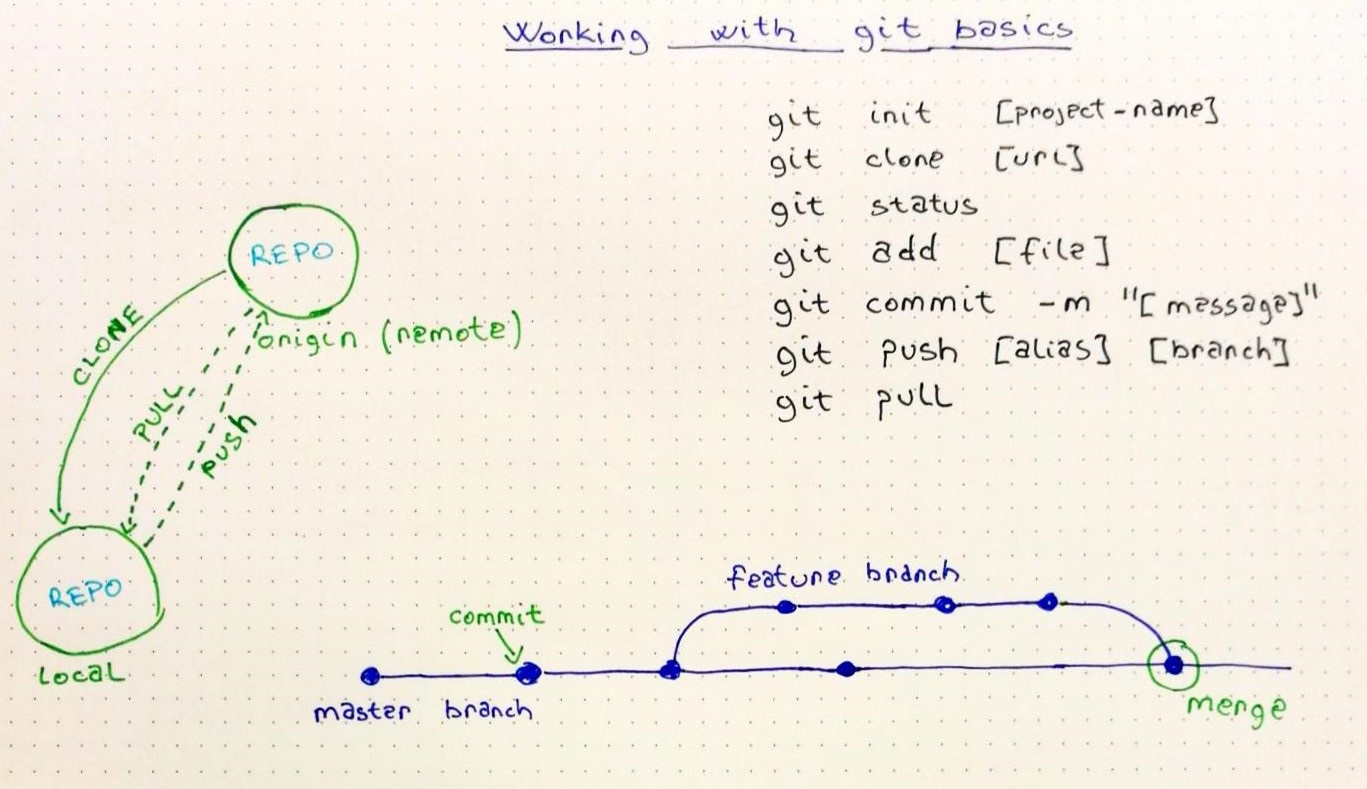 Working with git basics
git init [project-name]
git clone [url]
git status
git add [file]
git commit -m "[message]"
git push [alias] [branch]
git pull
REPO
origin (remote)
CLONE
PULL
PUSH
REPO
local
feature branch
commit
master branch
merge